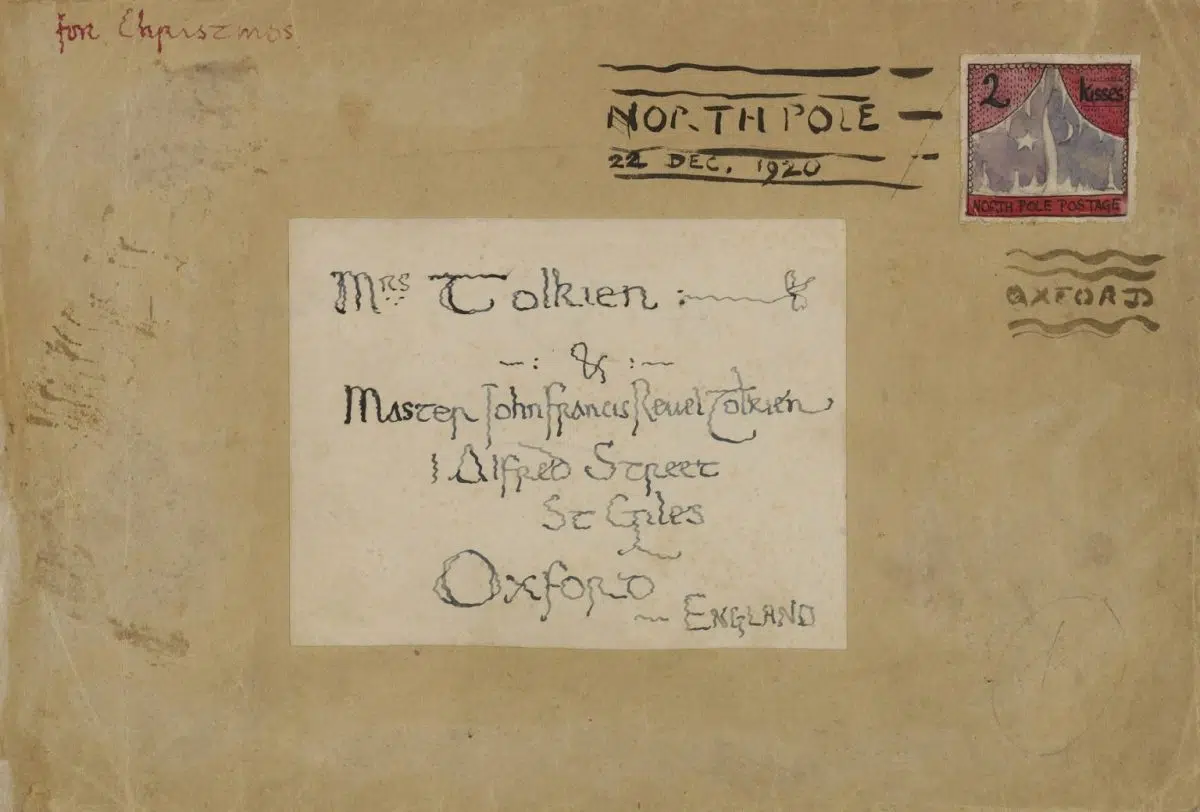 for Christmas
NORTH POLE
22 DEC. 1920
2 kisses
NORTH POLE POSTAGE
OXFORD
Mrs Tolkien :
— : & : —
Master John Francis Reuel Tolkien,
1 Alfred Street
St Giles
Oxford
~ England